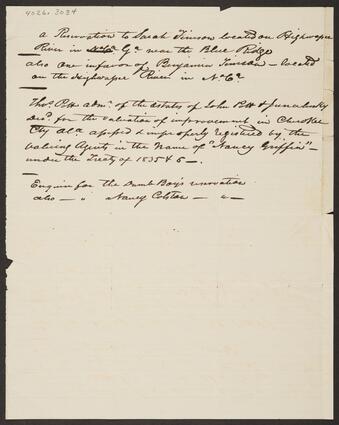 4026.3034
a Renovation to Sarah Timson located on Highwapee
River in N.Ca Ga near the Blue Ridge
also One infavor of Benjamin Timson - located
on the Highwapee River in N. Ca
Thos. Pott admr. of the estates of John Pott &
Decd. for the valuation of improvement in Cherokee
Cty Ala apprd & improperly registered by the
valuing Agents in the name of "Nancy Griffin" -
under the Treaty of 1835 & 6 -.
Enquire for the Dumb Boy's renovation
also - " Nancy Colston - " -